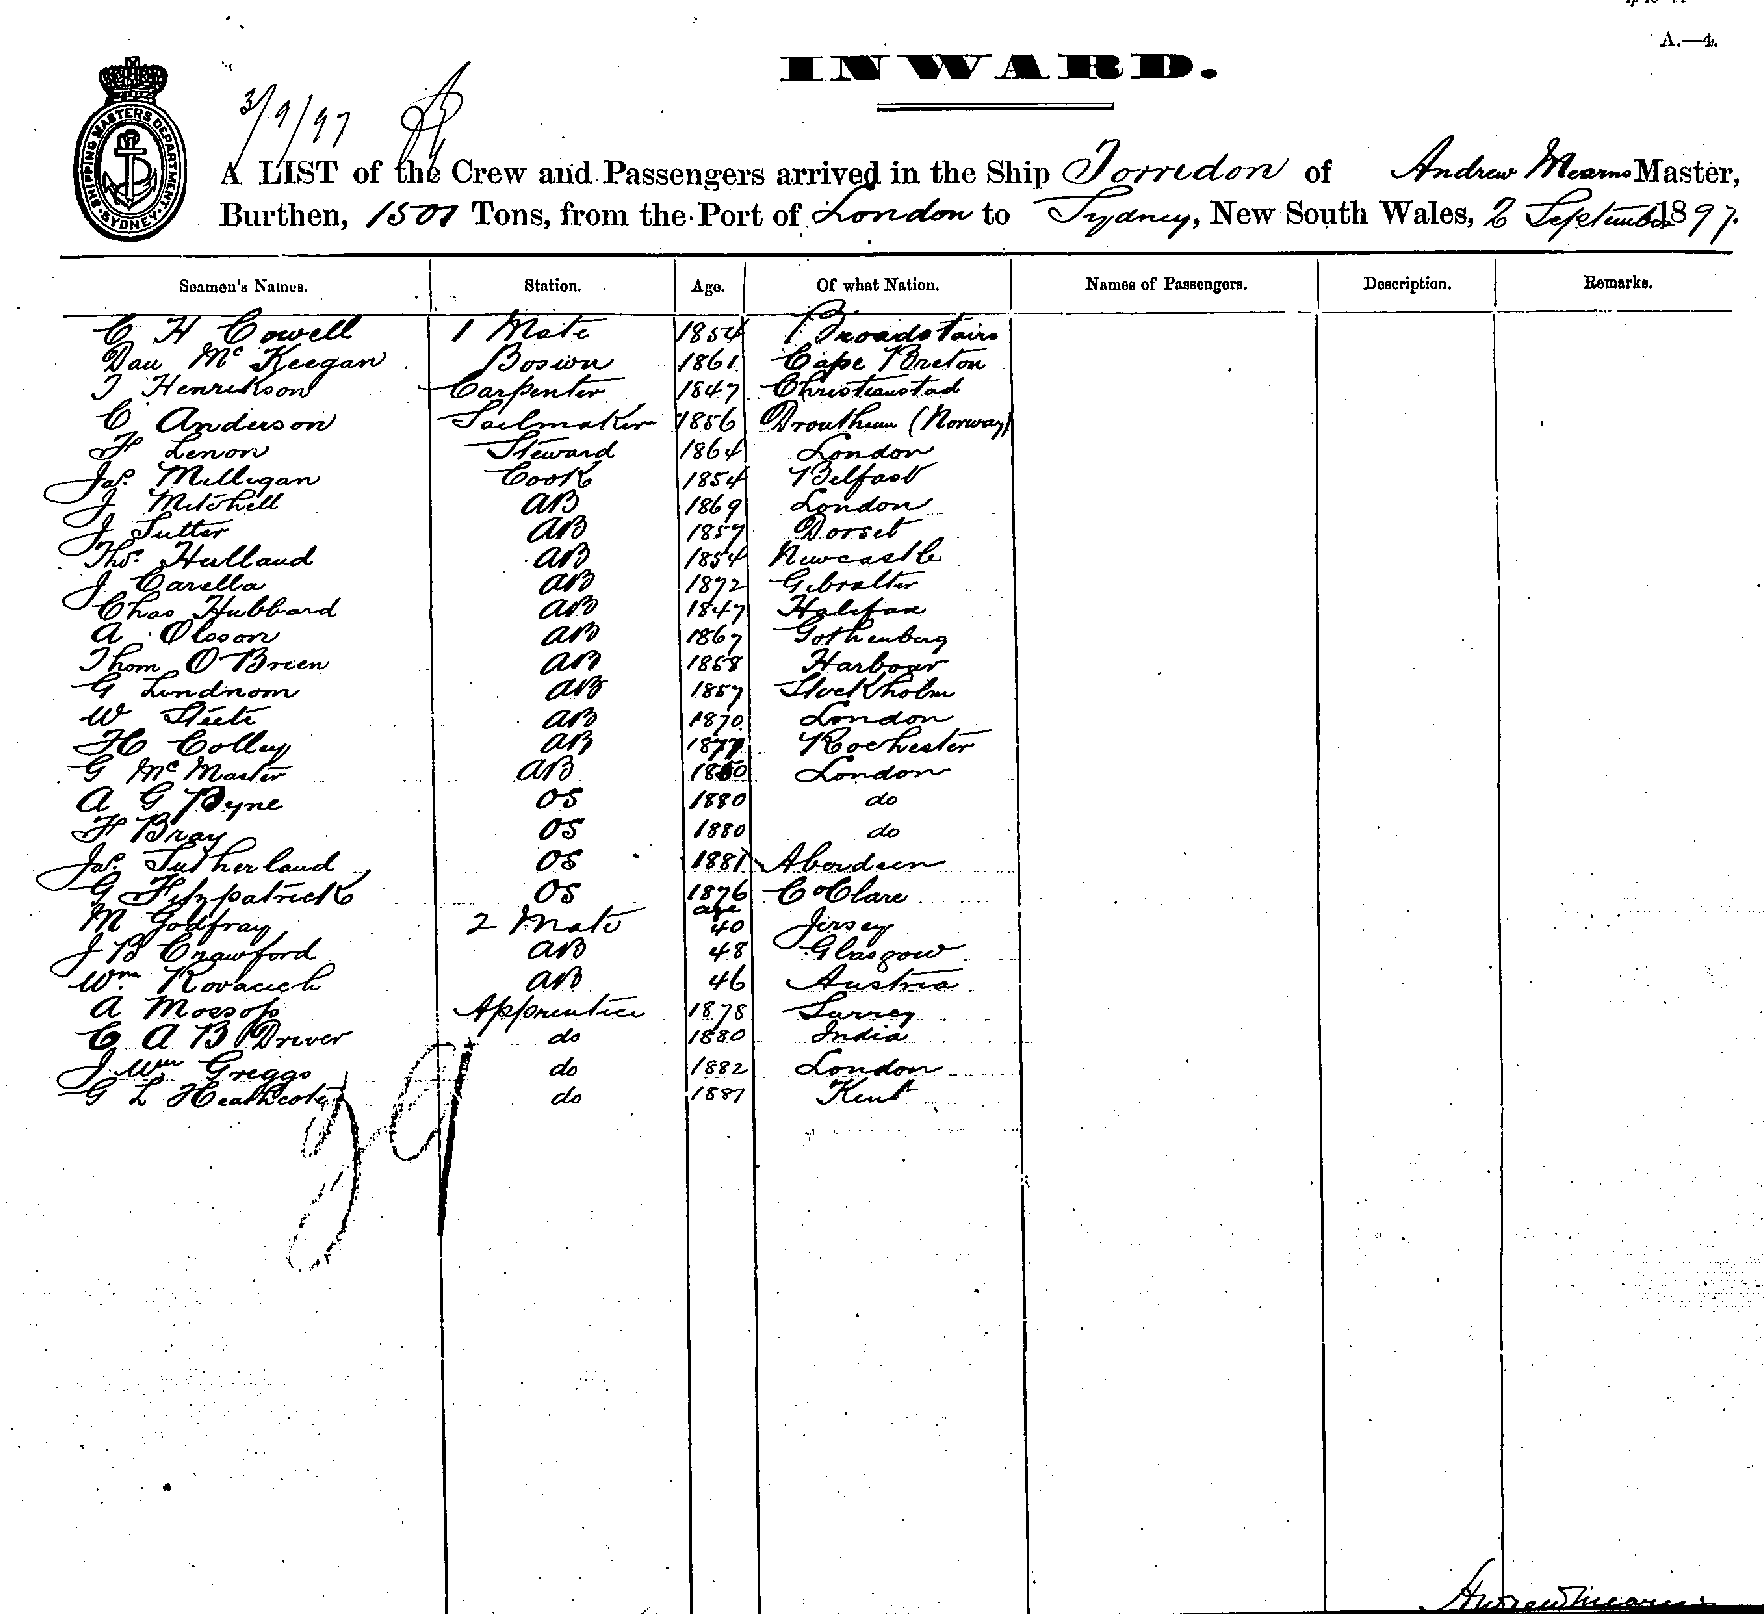 A.—4.
INWARD.
SHIPPING MASTERS DEPARTMENT SYDNEY
3/9/97
A LIST of the Crew and Passengers arrived in the Ship Torridon of Andrew Mearns Master,
Burthen, 1501 Tons, from the Port of London to Sydney, New South Wales, 2 September 1897.
Seamen's Names. Station. Age. Of what Nation. Names of Passengers. Description. Remarks.
C H Cowell 1 Mate 1854 Broadstairs
Dan McKeegan Boswn 1861 Cape Breton
T Henrikson Carpenter 1847 Christianstad
C Anderson Sailmaker 1856 Drontheim (Norway)
F Lenon Steward 1864 London
Jas. Milligan Cook 1854 Belfast
J Mitchell AB 1869 London
J Sutter AB 1857 Dorset
Thos. Hulland AB 1854 Newcastle
J Carella AB 1872 Gibralter
Chas Hubbard AB 1847 Halifax
A Olsson AB 1867 Gothenburg
Thom O'Brien AB 1858 Harbour
G Lindnom AB 1857 Stockholm
W AB 1870 London
H Colley AB 1877 Rochester
G McMaster AB London
A G Pyne OS 1880 do
F Bray OS 1880 do
Jas. Sutherland OS 1881 Aberdeen
G Fitzpatrick OS 1876 Co Clare
M Godfray 2 Mate age 40 Jersey
J B Crawford AB 48 Glasgow
Wm. Kovacich AB 46 Austria
A Mossop Apprentice 1878 Surrey
C A B Driver do 1880 India
J Wm Greggs do 1882 London
G L Heathcote do 1881 Kent
29
Andrew Mearns